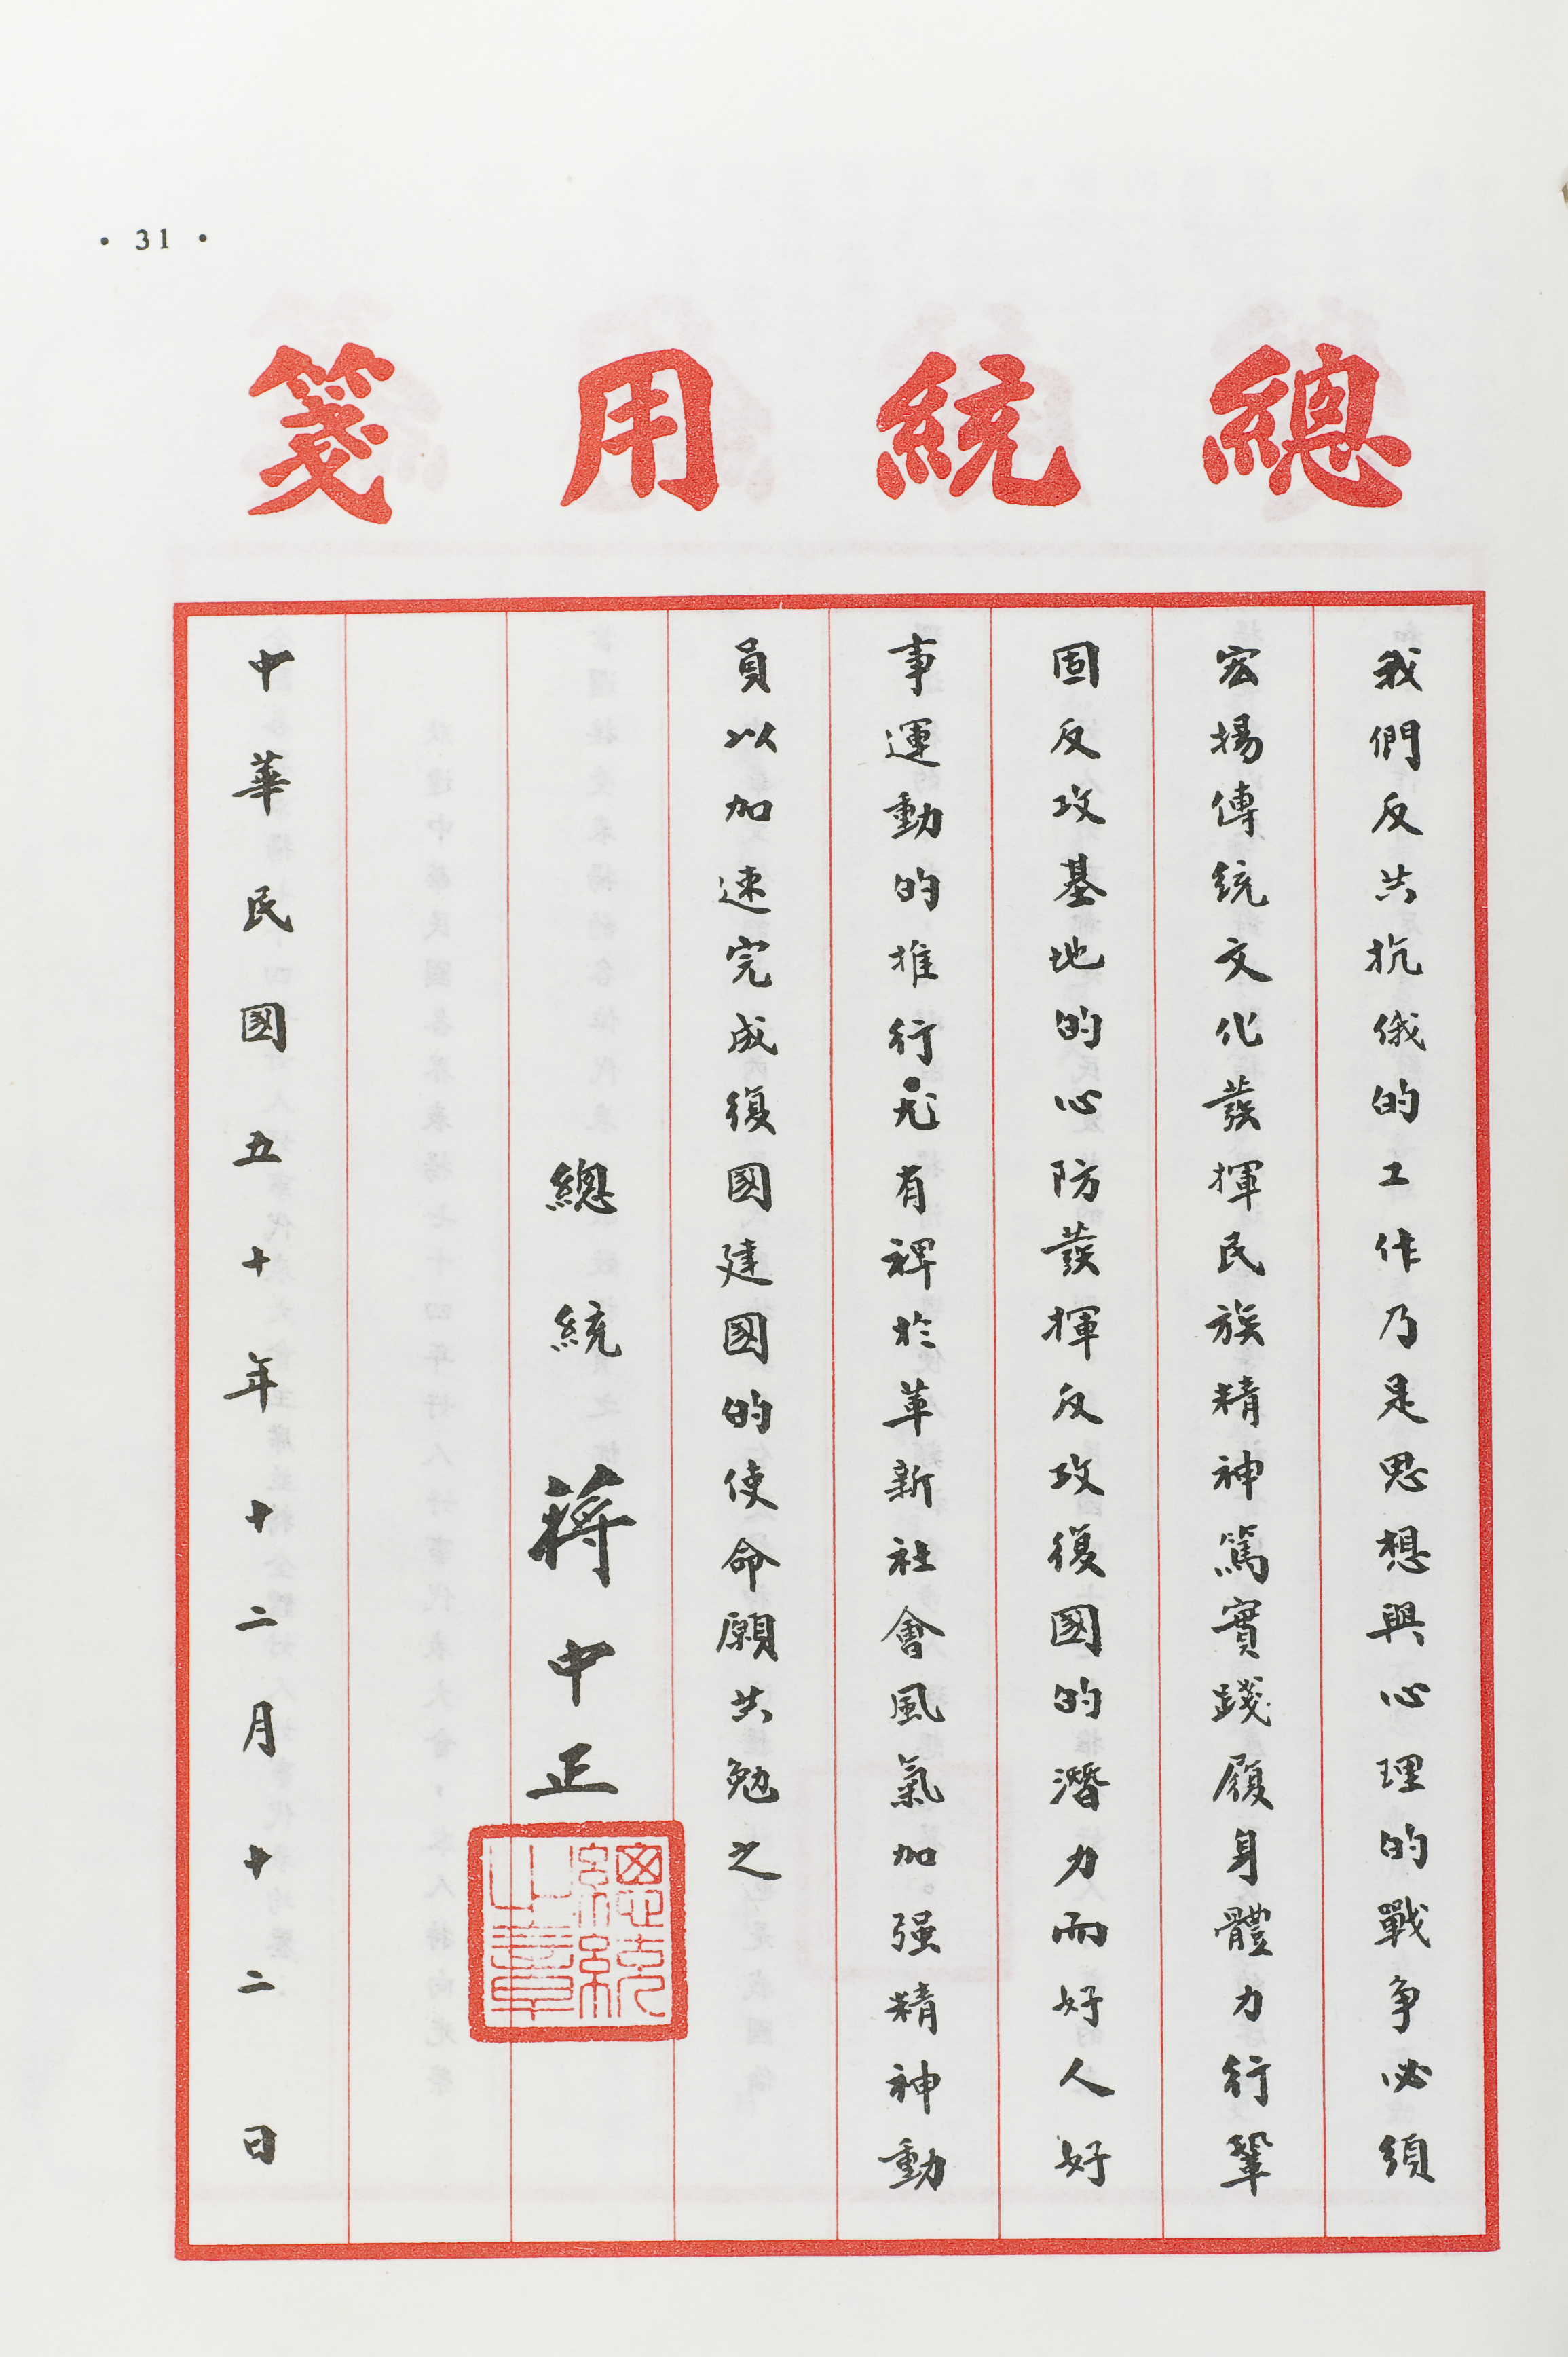 • 31 •
總統用箋
我們反共抗俄的工作乃是思想與心理的戰爭必須
宏揚傳統文化發揮民族精神篤實踐履身體力行鞏
固反攻基地的心防發揮反攻復國的潛力而好人好
事運動的推行尤有裨於革新社會風氣加。强精神動
員以加速完成復國建國的使命願共勉之
總統 蔣中正
總統之章
中華民國五十年十二月十二日